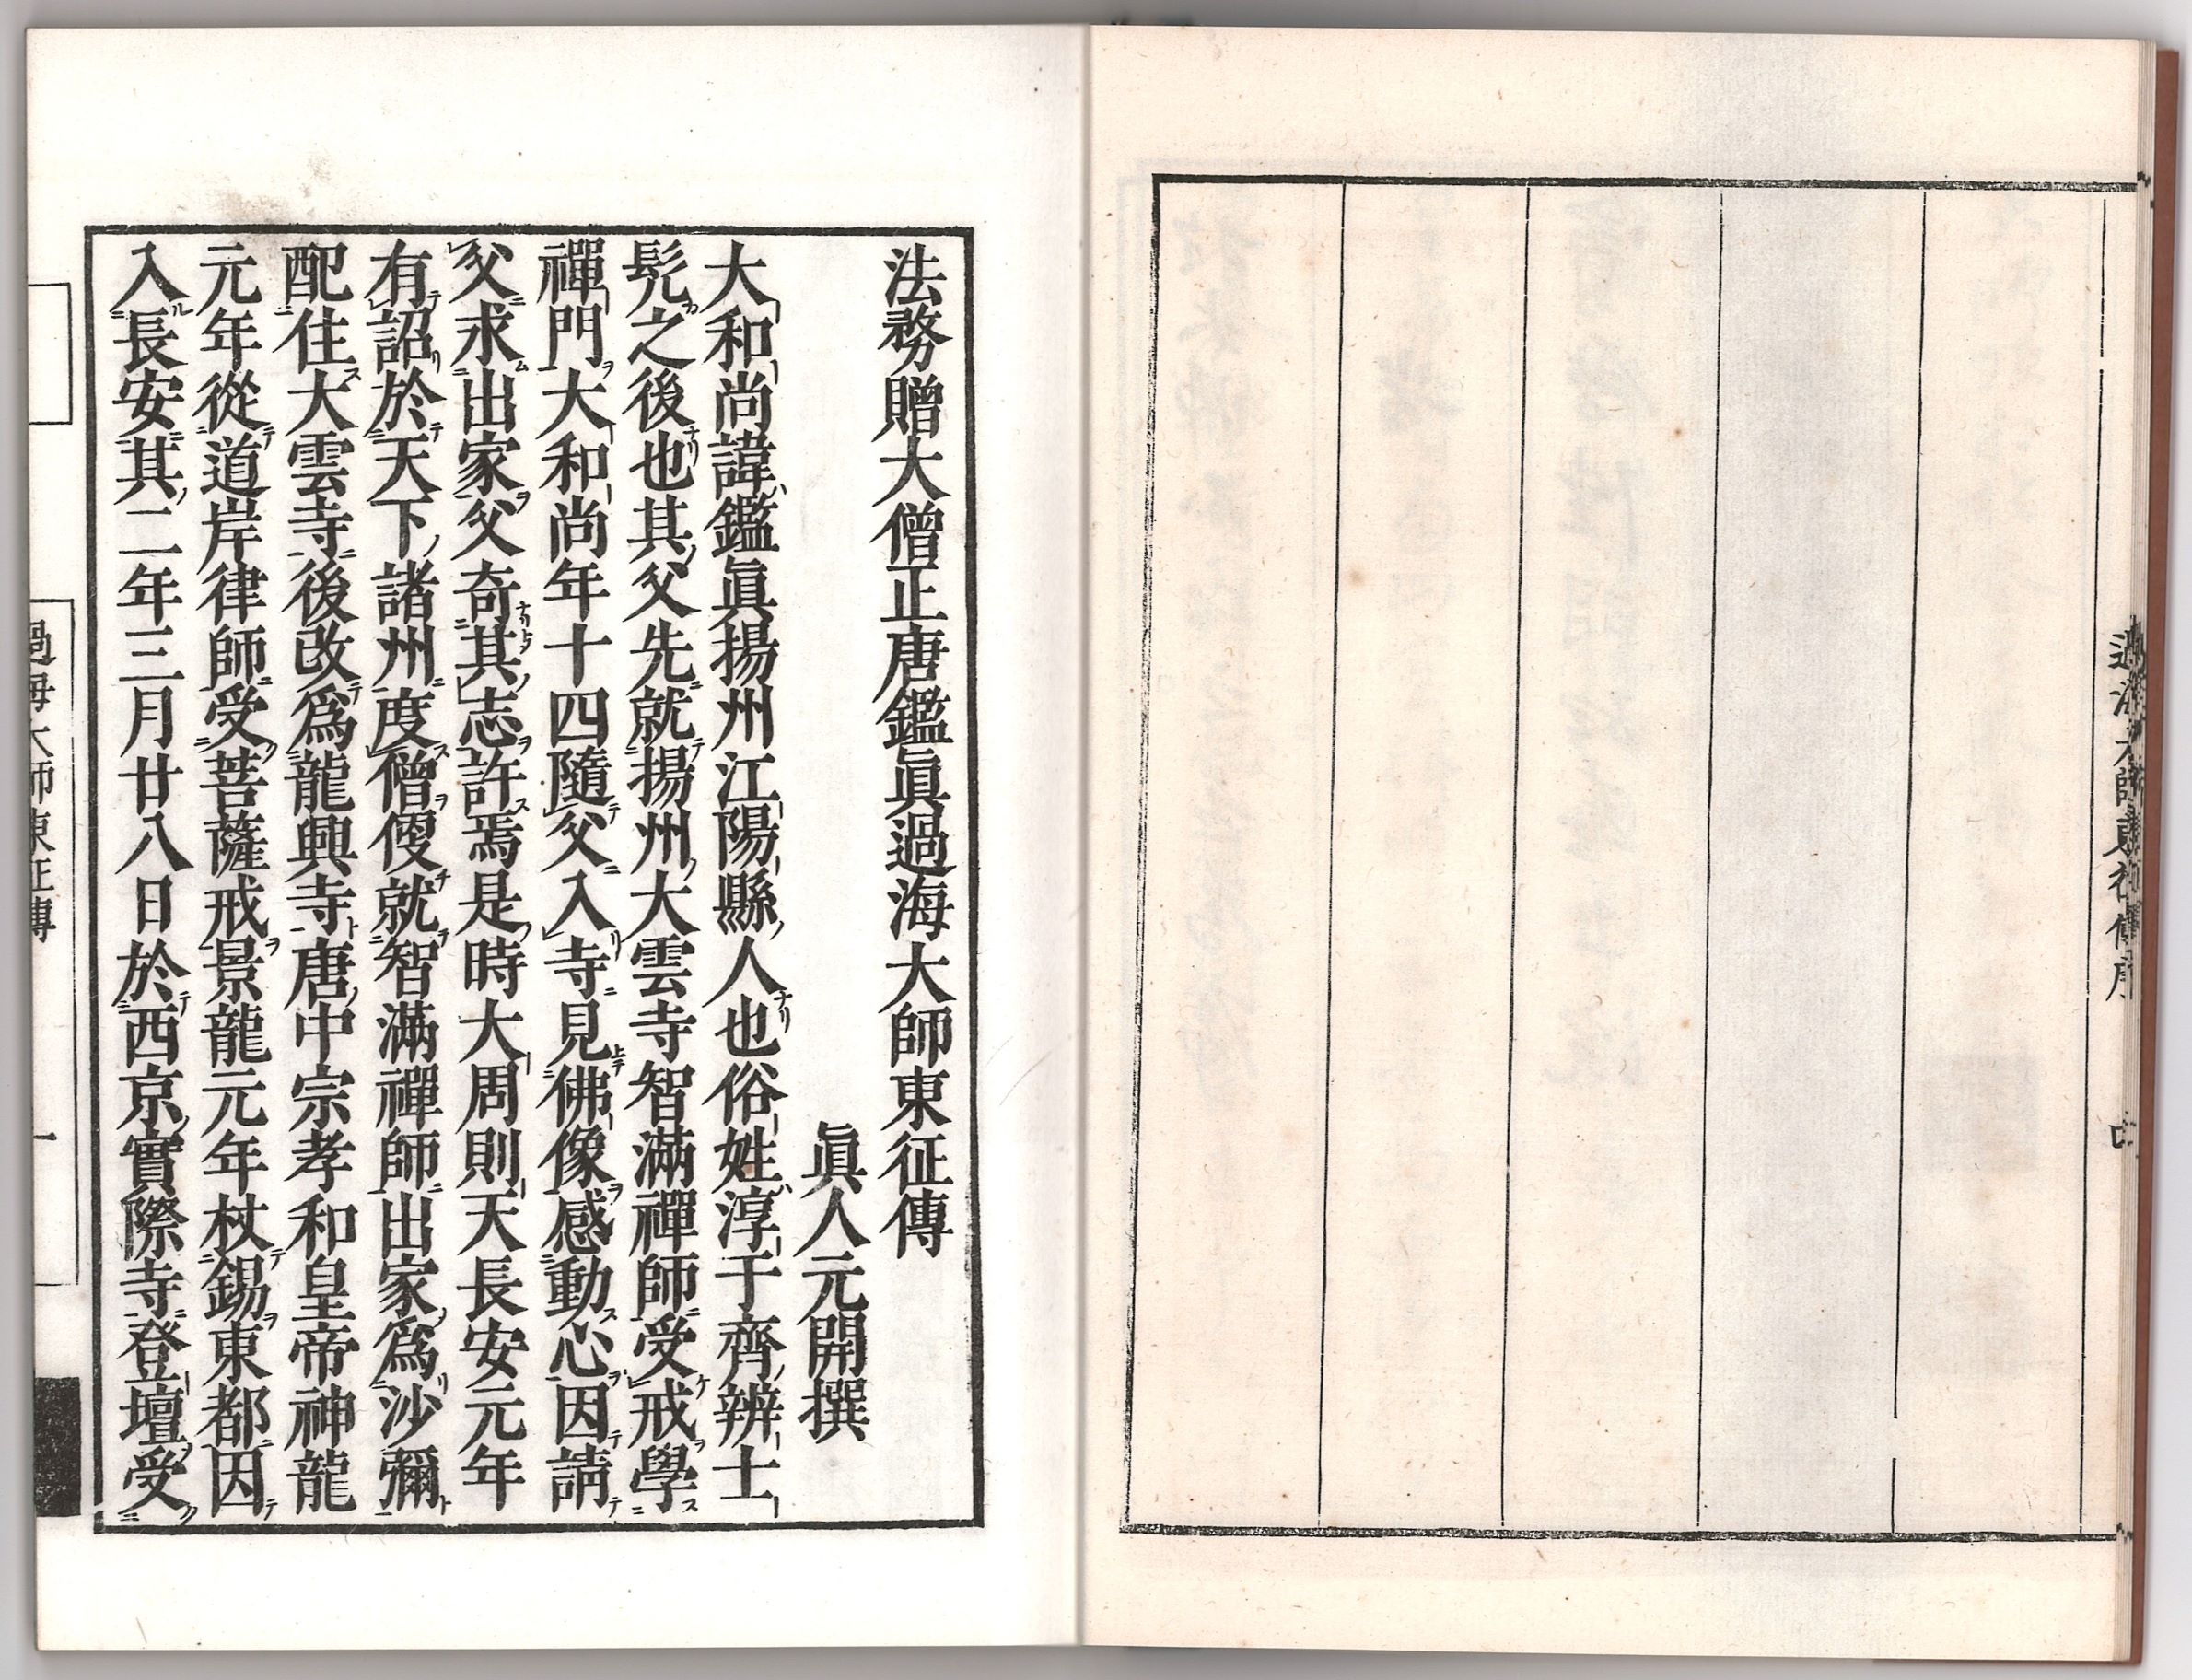 過海大師東征傳序
法務贈大僧正唐鑑眞過海大師東征傳
眞人元開撰
大和尚諱鑑眞揚州江陽縣人也俗姓淳于齊辨士
髠之後也其父先就揚州大雲寺智滿禪師受戒學
禪門大和尚年十四隨父入寺見佛像感動心因請
父求出家父奇其志許焉是時大周則天長安元年
有詔於天下諸州度僧便就智滿禪師出家爲沙彌
配住大雲寺後改爲龍興寺唐中宗孝和皇帝神龍
元年從道岸律師受菩薩戒景龍元年杖錫東都因
入長安其二年三月廿八日於西京實際寺登壇受
過海大師東征傳 一